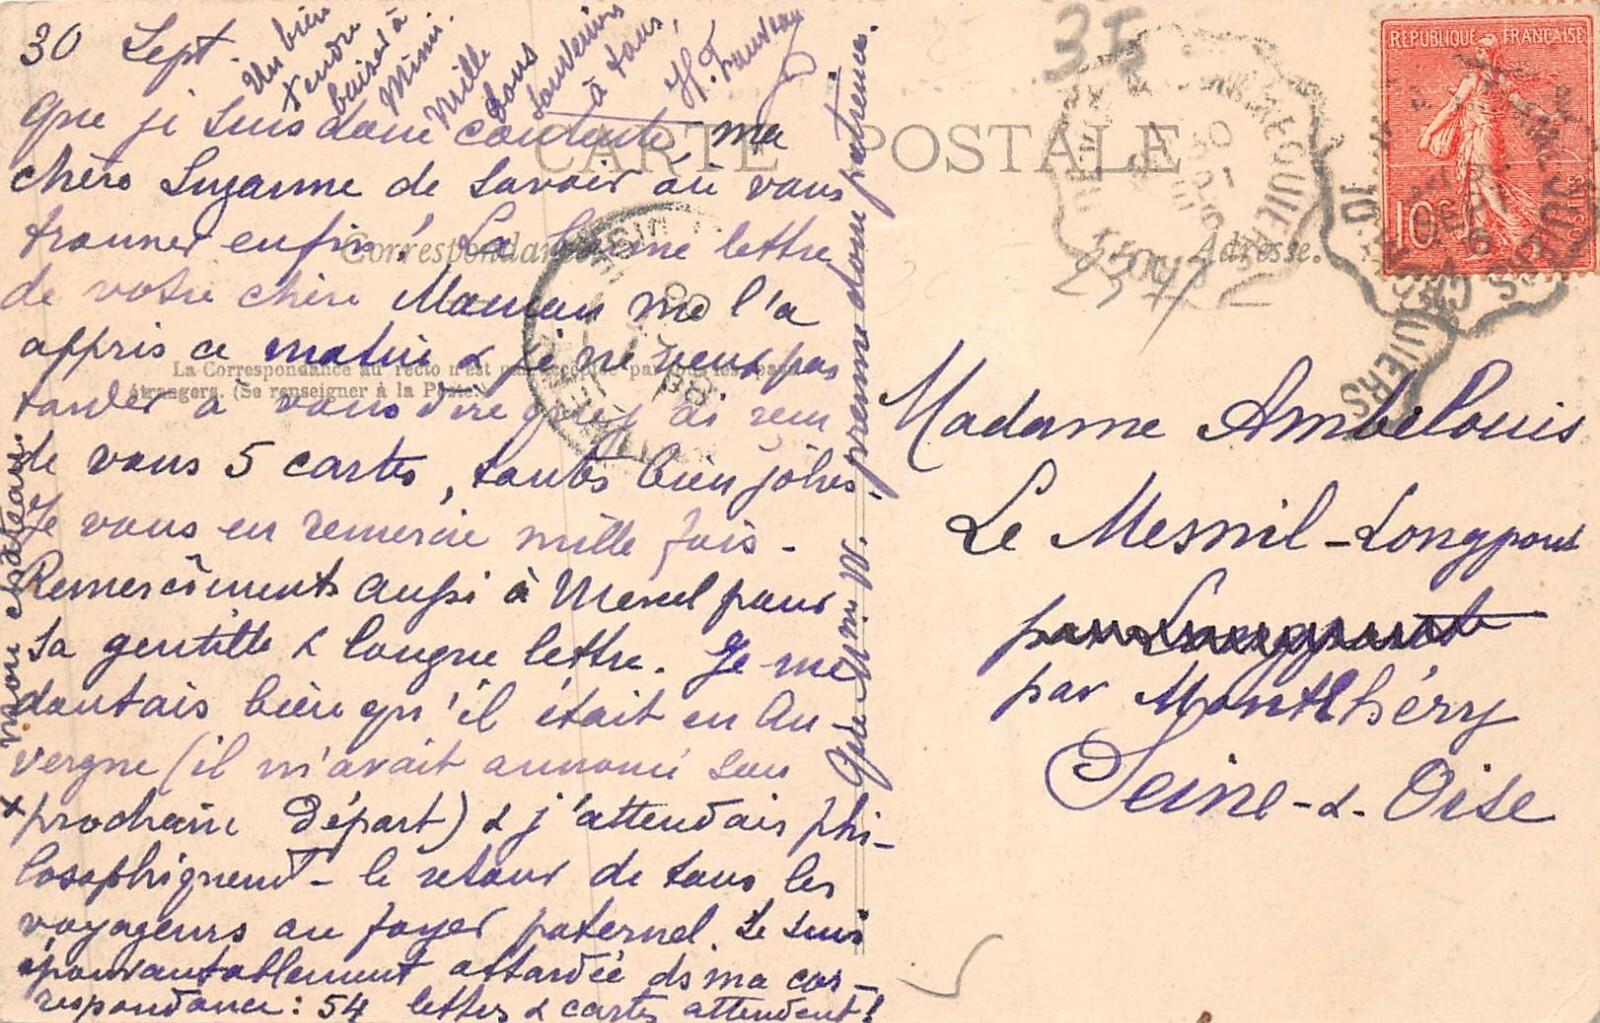 30 Sept.
Que je suis donc contente ma
chère Suzanne de savoir où vous
trouver enfin! La bonne lettre
de votre chère Maman me l'a
appris ce matin & je ne veux pas
tarder à vous dire que j'ai reçu
de vous 5 cartes, toutes bien jolies.
Je vous en remercie mille fois -
Remerciments aussi à Marcel pour
sa gentille & longue lettre. Je me
doutais bien qu'il était en Au-
vergne (il m'avait annoncé son
prochain départ) & j'attendais phi-
losophiquement - le retour de tous les
voyageurs au foyer paternel. Je suis
épouvantablement attardée ds ma cor-
respondance: 54 lettres & cartes attendent!
mon château
Que Mme W. prenne donc patience.
Un bien
tendre
baiser à
Mimi.
Mille
bons
souvenirs
à tous,
H. Fauveau
CARTE POSTALE
Correspondance
Adresse.
La Correspondance au recto n'est pas acceptée par tous les pays
étrangers. (Se renseigner à la Poste.)
REPUBLIQUE FRANÇAISE
10c
POSTES
35
Madame Ambelouis
Le Mesnil-Longpont
par Montlhéry
Seine-&-Oise